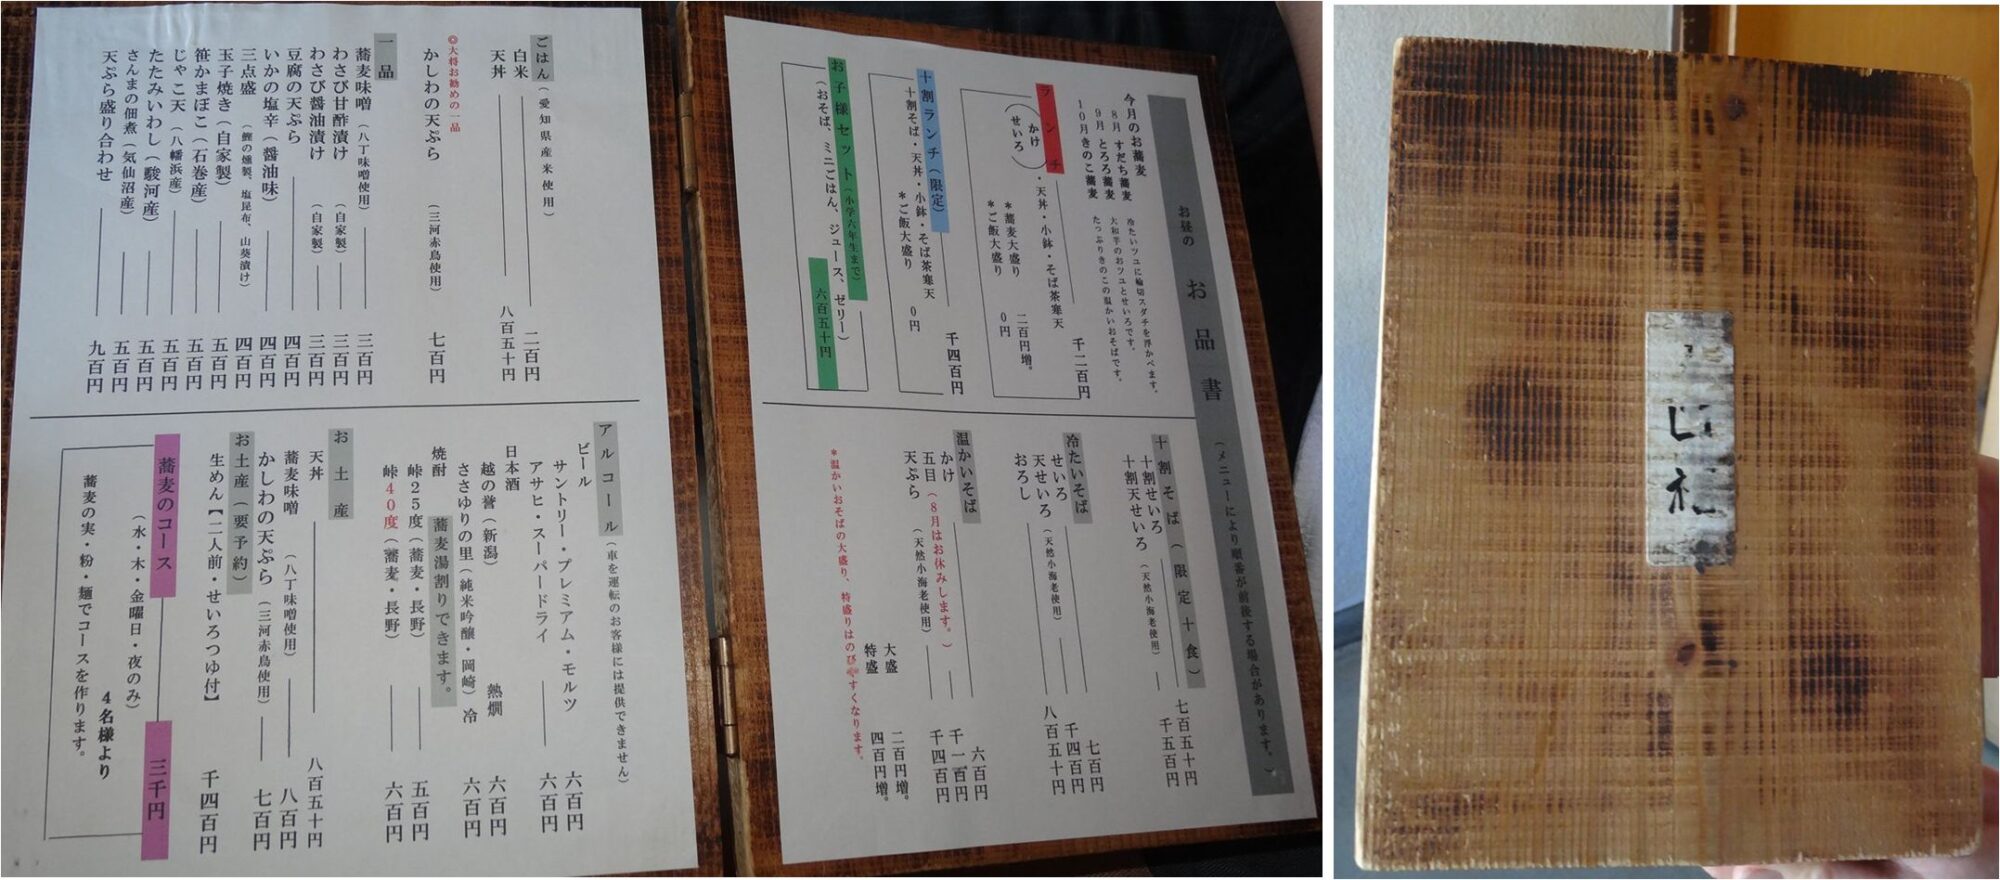 お昼の お品書 (メニューにより順番が前後する場合があります。)
今月のお蕎麦
8月 すだち蕎麦 冷たいツユに輪切スダチを浮かべます。
9月 とろろ蕎麦 大和芋のおツユとせいろです。
10月きのこ蕎麦 たっぷりきのこの温かいおそばです。
ランチ
(かけ せいろ)・天丼・小鉢・そば茶寒天 千二百円
*蕎麦大盛り 二百円増。
*ご飯大盛り 0円
十割ランチ(限定)
十割そば・天丼・小鉢・そば茶寒天 千四百円
*ご飯大盛り 0円
お子様セット(小学六年生まで)
(おそば、ミニごはん、ジュース、ゼリー)
六百五十円
十割そば(限定十食)
十割せいろ 七百五十円
十割天せいろ (天然小海老使用) 千五百円
冷たいそば
せいろ 七百円
天せいろ (天然小海老使用) 千四百円
おろし 八百五十円
温かいそば
かけ 六百円
五目(8月はお休みします。) 千一百円
天ぷら (天然小海老使用) 千四百円
大盛 二百円増。
特盛 四百円増。
*温かいおそばの大盛り、特盛りはのびやすくなります。
ごはん(愛知県産米使用)
白米 二百円
天丼 八百五十円
◎大将お勧めの一品
かしわの天ぷら (三河赤鳥使用) 七百円
一品
蕎麦味噌 (八丁味噌使用) 三百円
わさび甘酢漬け (自家製) 三百円
わさび醤油漬け (自家製) 三百円
豆腐の天ぷら 四百円
いかの塩辛(醤油味) 四百円
三点盛 (鰹の燻製、塩昆布、山葵漬け) 四百円
玉子焼き(自家製) 五百円
笹かまぼこ(石巻産) 五百円
じゃこ天 (八幡浜産) 五百円
たたみいわし(駿河産) 五百円
さんまの佃煮(気仙沼産) 五百円
天ぷら盛り合わせ 九百円
アルコール(車を運転のお客様には提供できません)
ビール
サントリー・プレミアム・モルツ 六百円
アサヒ・スーパードライ 六百円
日本酒
越の誉(新潟) 熱燗 六百円
ささゆりの里(純米吟醸・岡崎)冷 六百円
焼酎 蕎麦湯割りできます。
峠25度(蕎麦・長野) 五百円
峠40度(蕎麦・長野) 六百円
お土産
天丼 八百五十円
蕎麦味噌 (八丁味噌使用) 八百円
かしわの天ぷら(三河赤鳥使用) 七百円
お土産(要予約)
生めん【二人前・せいろつゆ付】 千四百円
蕎麦のコース 三千円
(水・木・金曜日・夜のみ)
4名様より
蕎麦の実・粉・麺でコースを作ります。